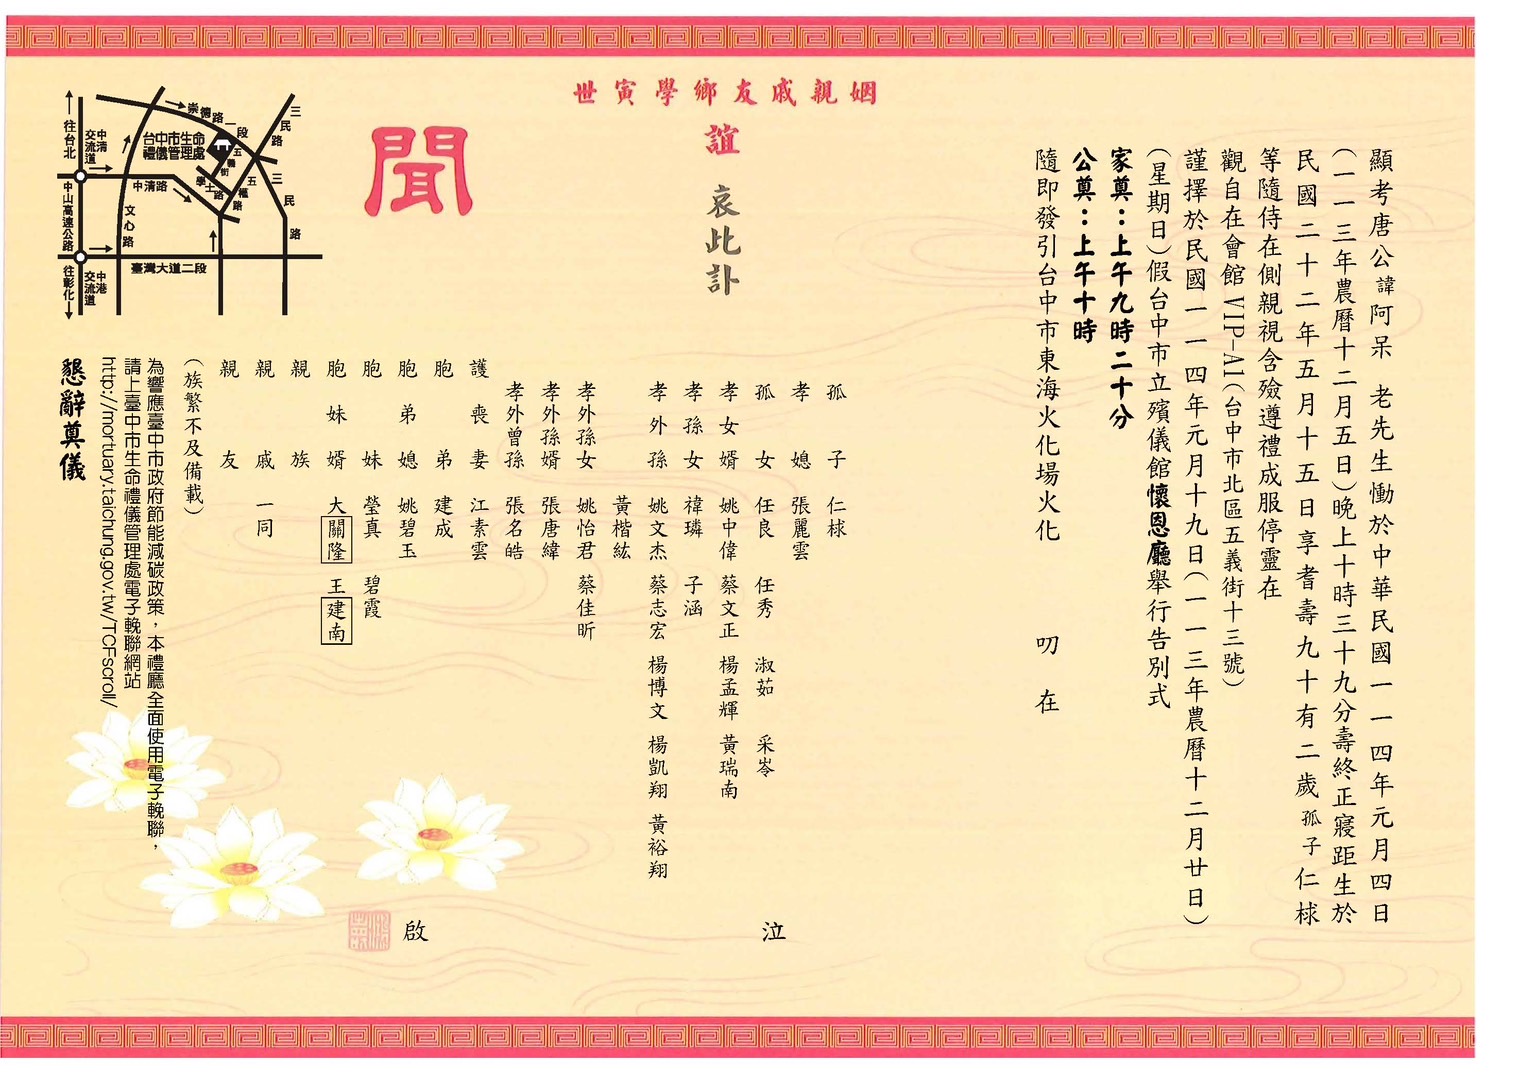 顯考唐公諱阿呆 老先生慟於中華民國一一四年元月四日
(一一三年農曆十二月五日)晚上十時三十九分壽終正寢距生於
民國二十二年五月十五日享耆壽九十有二歲孤子仁梂
等隨侍在側親視含殮遵禮成服停靈在
觀自在會館VIP-A1(台中市北區五義街十三號)
謹擇於民國一一四年元月十九日(一一三年農曆十二月廿日)
(星期日)假台中市立殯儀館懷恩廳舉行告別式
家奠:上午九時二十分
公奠:上午十時
隨即發引台中市東海火化場火化 叨在
姻親戚友鄉學寅世
誼 哀此訃
聞
孤子 仁梂
孝媳 張麗雲
孤女 任良 任秀 淑茹 采岺
孝女婿 姚中偉 蔡文正 楊孟輝 黃瑞南
孝孫女 禕璘 子涵
孝外孫 姚文杰 蔡志宏 楊博文 楊凱翔 黃裕翔
黃楷紘
孝外孫女 姚怡君 蔡佳昕
孝外孫婿 張唐緯
孝外曾孫 張名皓
泣
護喪妻 江素雲
胞弟 建成
胞弟媳 姚碧玉
胞妹 瑩真 碧霞
胞妹婿 大關隆 王建南
親族
親戚 一同
親友
(族繁不及備載)
啟
為響應臺中市政府節能減碳政策,本禮廳全面使用電子輓聯,
請上臺中市生命禮儀管理處電子輓聯網站
http://mortuary.taichung.gov.tw/TCFscroll/
懇辭奠儀
往台北
中清交流道
中山高速公路
中港交流道
往彰化
中清路
文心路
臺灣大道二段
崇德路一段
台中市生命
禮儀管理處
五義街
學士路
五權路
三民路
三民路